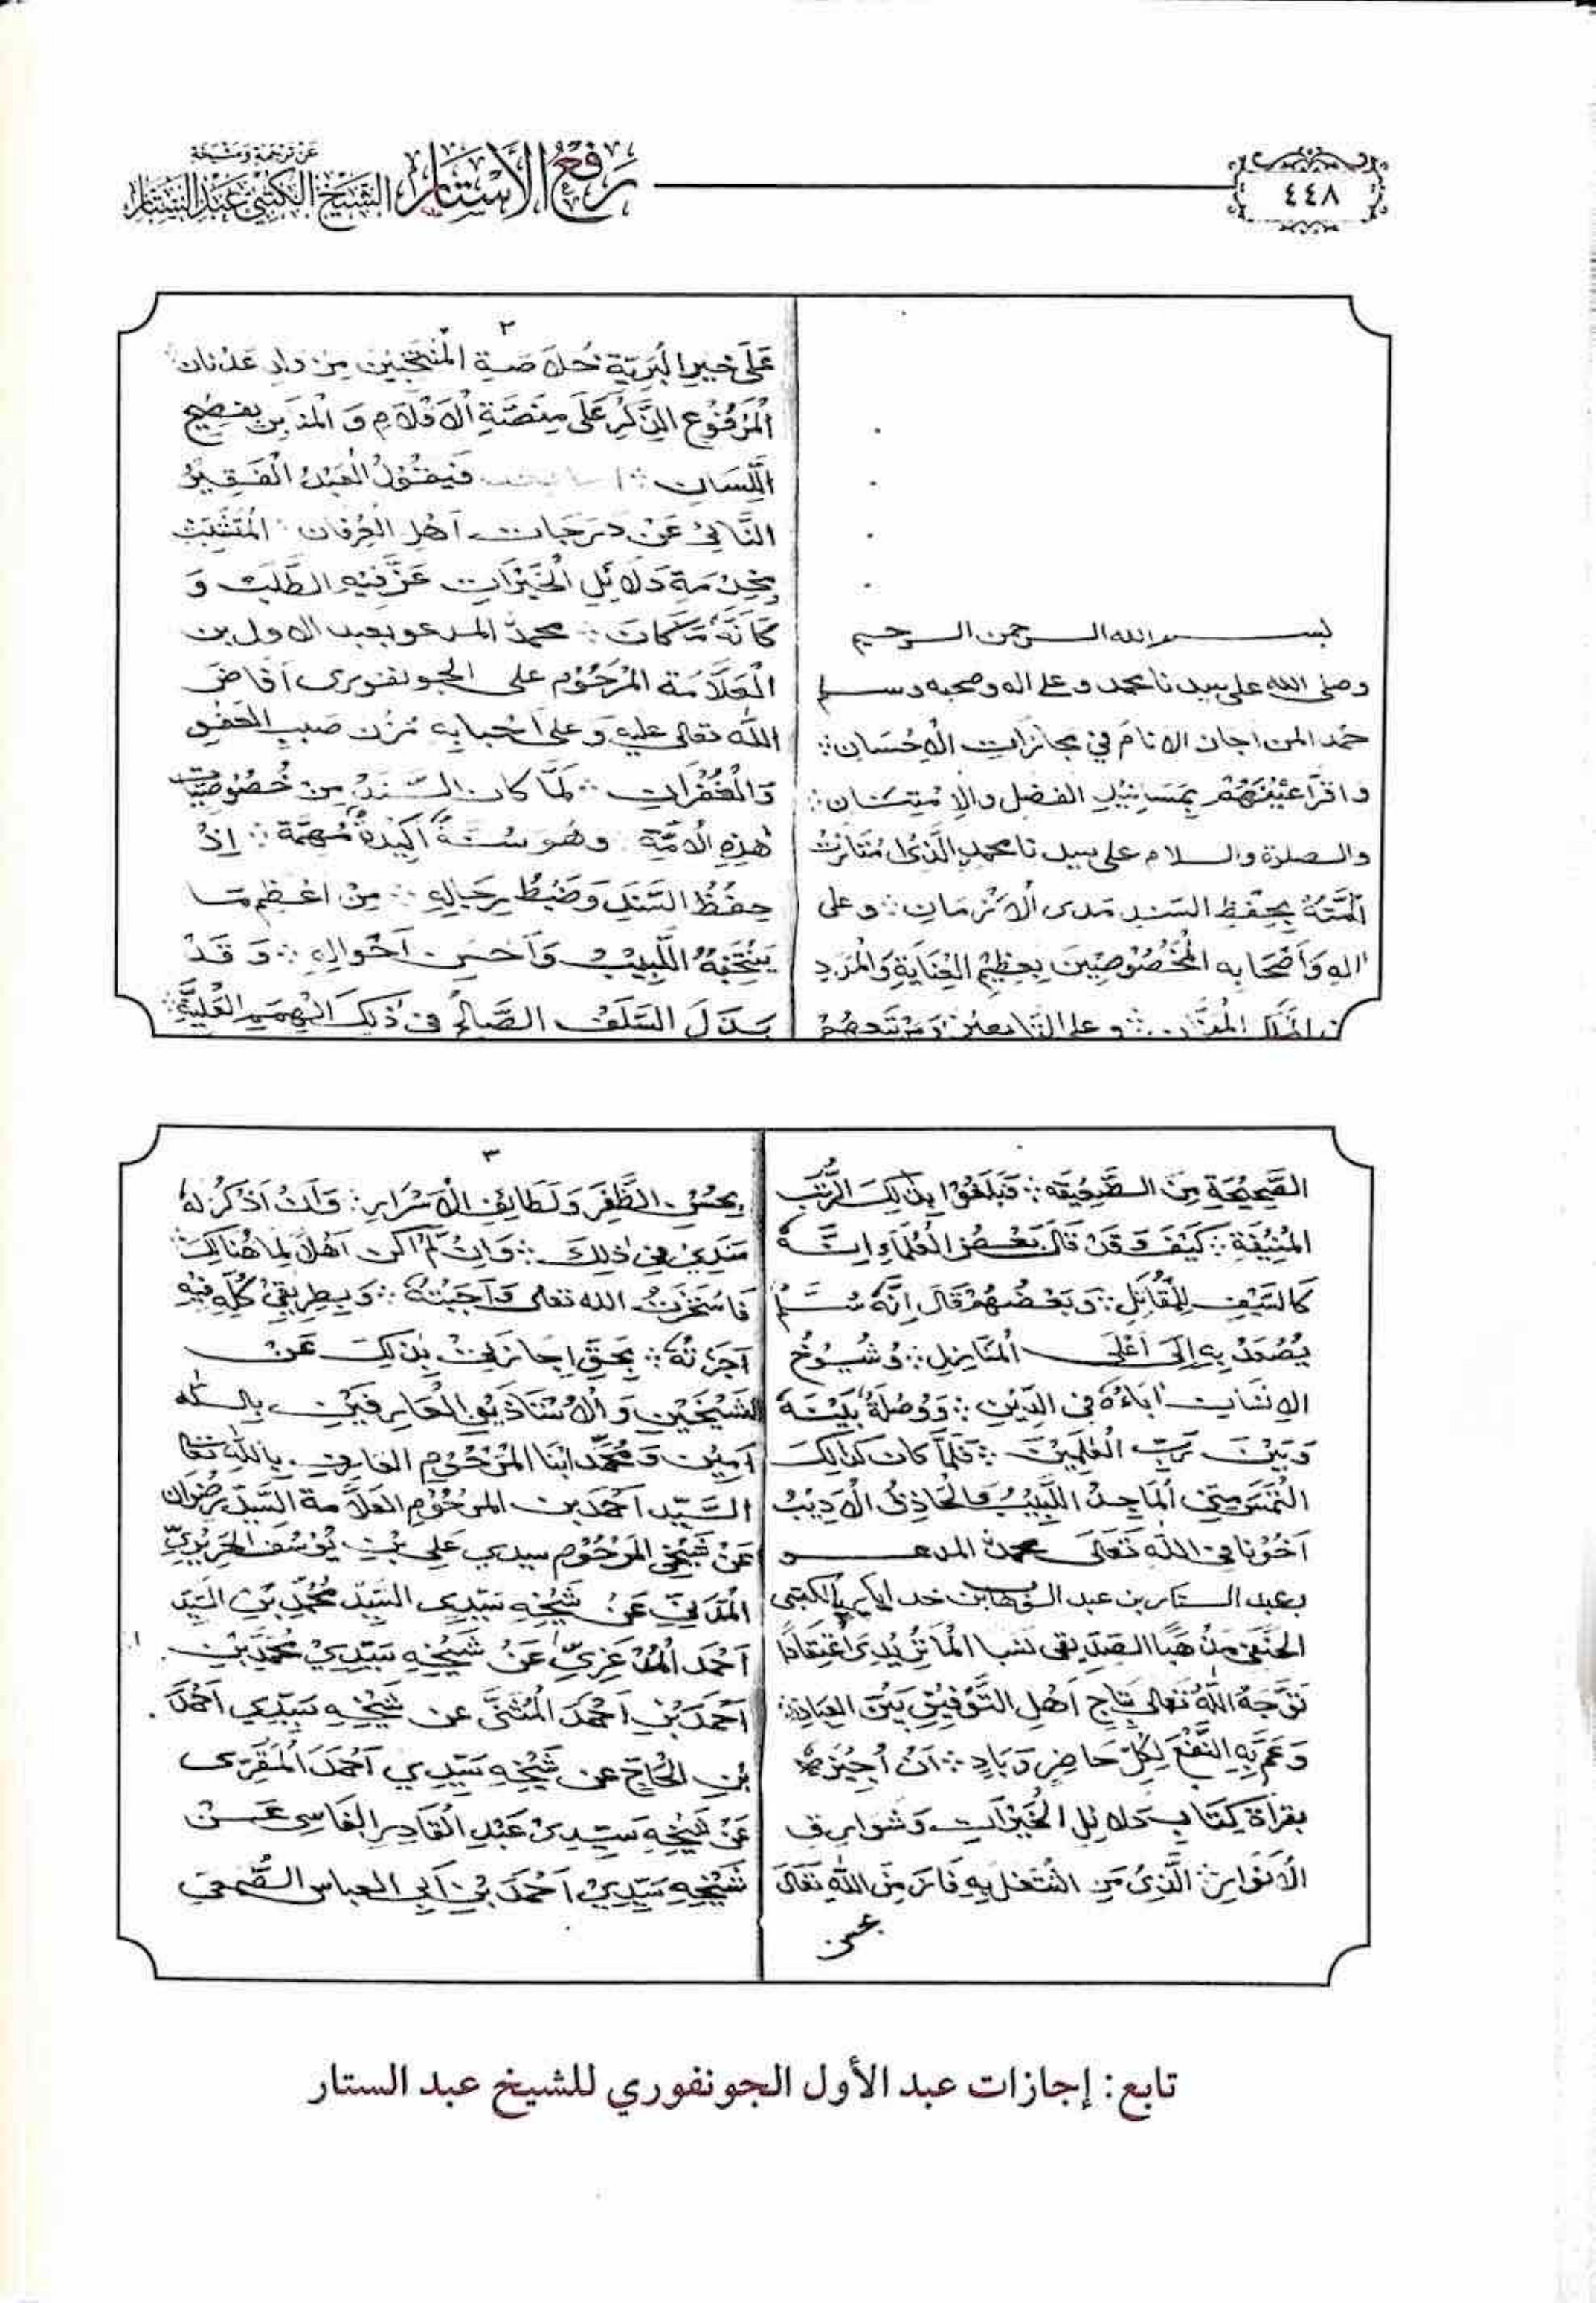 ٤٤٨
رفع الأستار
عن ترجمة ومشيخة
الشيخ الكتبي عبد الستار
بسم الله الرحمن الرحيم
وصلى الله على سيدنا محمد وعلى اله وصحبه وسلم
حمد المن اجان الانام في مجازات الْاِحْسَان
واقرّ اعْيُنَهُمْ بمسانيد الفضل والاِمْتِنَان
والصلوة والسلام على سيدنا محمد الَّذِىْ
بحفظ السند مدى الْاَزْمَان وعلى
اله وَاَصْحَابه الْمَخْصُوْصِيْن بعظيم الْعِنَايَةِ وَالْمَدَدِ
وعلى التابعين وَمَنْ تبعهم
٢
عَلَى خير الْبَرِيَّة خُلَاصَة الْمُنْتَخَبِيْن مِن ولد عَدْنَان
اَلْمَرْفُوْع الذِّكْرِ عَلَى مِنَصَّةِ الْاَقْلَامِ وَ بفصيح
اللِّسَان فَيَقُوْلُ الْعَبْدُ الْفَقِيْرُ
النَّائِىْ عَنْ دَرَجَات اَهْلِ الْعِرْفَان الْمُتَشَبِّث
بِخِدْمَةِ دَلَائِلِ الْخَيْرَات عَزَّ فِيْهِ الطَّلَبُ وَ
كَاَنَّهُ مَا كَانَ محمد المدعو بعبد الاول بن
الْعَلَّامَة الْمَرْحُوْم على الجونفورى اَفَاضَ
اللّٰه تعالى عليه وَعلى اَحْبَابِهِ مُزْن صَبيب العفو
وَالْغُفْرَان لَمَّا كان السَّنَدُ مِن خُصُوْصِيَّات
هٰذِهِ الْاُمَّة وهُو سُنَّةٌ اَكِيْدَةٌ مُهِمَّة اِذْ
حِفْظُ السَّنَدِ وَضَبْطُ رِجَالِهِ مِنْ اعْظَمِ مَا
يَنْتَخِبُهُ اللَّبِيْبُ وَاَحْسَن اَحْوَالِهِ وَقَدْ
بَذَلَ السَّلَفُ الصَّالِحُ فى ذٰلِكَ الْهِمَم الْعَلِيَّة
الصَّحِيْحَةِ مِنَ الضَّعِيْفَة فَبَلَغُوْا بِذٰلِكَ الرُّتَب
الْمُنِيْفَةِ كَيْفَ وَقَدْ قَالَ بَعْضُ الْعُلَمَاءِ اِنَّهُ
كَالسَّيْفِ لِلْمُقَاتِل وَبَعْضُهُمْ قَالَ اِنَّهُ سُلَّمٌ
يُصْعَدُ بِهِ اِلَى اَعْلَى الْمَنَازِل وَشُيُوْخُ
الاِنْسَان اٰبَاءُهُ فِى الدِّيْنِ وَوُصْلَةٌ بَيْنَهُ
وَبَيْنَ رَبِّ الْعٰلَمِيْنَ فَلَمَّا كَانَ كَذٰلِكَ
الْتَمَسَ مِنِّى اَلْمَاجِدُ اللَّبِيْبُ وَالْحَاذِقُ الْاَدِيْبُ
اَخُوْنَا فِى اللّٰه تَعَالَى محمد المدعو
بعبد الستار بن عبد الوهاب بن خدايار الكتبى
الحنفى مَذْهَبًا الصديقى نسبا الْمَاتُرِيْدِى اعْتِقَادًا
تَوَّجَهُ اللّٰهُ تعالى بتَاجِ اَهْلِ التَّوْفِيْقِ بَيْنَ العِبَادِ
وَعَمَّ بِهِ النَّفْعَ لِكُلِّ حَاضِرٍ وَبَادٍ اَنْ اُجِيْزَهُ
بقراءة كِتَاب دلائل الْخَيْرَات وَشَوَارِق
الْاَنْوَار الَّذِىْ مَنِ اشْتَغَلَ بِهِ فَازَ مِنَ اللّٰهِ تَعَالَى
بحسن
٣
بِحُسْنِ الظَّفَرِ وَلَطَائِفِ الْاَسْرَارِ وَاَنْ اَذْكُرَ لهُ
سَنَدِىْ فِىْ ذٰلِكَ وَاِنْ لَّمْ اَكُنْ اَهْلًا لِمَا هُنَالِكَ
فَاسْتَخَرْتُ الله تعالى وَاَجَبْتُهُ وَ
اَجَزْتُهُ بِحَقِّ اِجَازَتِىْ بِذٰلِكَ عَنْ
الشَّيْخَيْنِ وَالْاُسْتَاذَيْنِ الْعَارِفَيْنِ بالله
اَمِيْن وَمُحَمَّد ابْنَا الْمَرْحُوْمِ العَارِف بِاللّٰهِ تَعَالى
السَّيِّد اَحْمَد بن المرحُوْم العَلَّامَة السَّيِّد رِضْوَان
عَنْ شَيْخِى الْمَرْحُوْم سيدي عَلِى بْنِ يُوْسُف الْحَرِيْرِيّ
الْمَدَنِيّ عَنْ شَيْخِهِ سَيِّدِى السَّيِّد مُحَمَّدِ بْنِ السَّيِّد
اَحْمَد الْمُدْغَرِىّ عَنْ شَيْخِهِ سَيِّدِيْ مُحَمَّدِ بْنِ
اَحْمَدَ بْنِ اَحْمَدَ الْمُثَنَّى عَن شَيْخِهِ سَيِّدِي اَحْمَدَ
بْنِ الْحَاجّ عن شَيْخِهِ سَيِّدِي اَحْمَدَ الْمَقَّرِى
عَنْ شَيْخِهِ سَيِّدِىْ عَبْدِ الْقَادِرِ الْفَاسِى عَنْ
شَيْخِهِ سَيِّدِيْ اَحْمَدَ بْنِ اَبِي العباس الصُّمَعِي
تابع: إجازات عبد الأول الجونفوري للشيخ عبد الستار